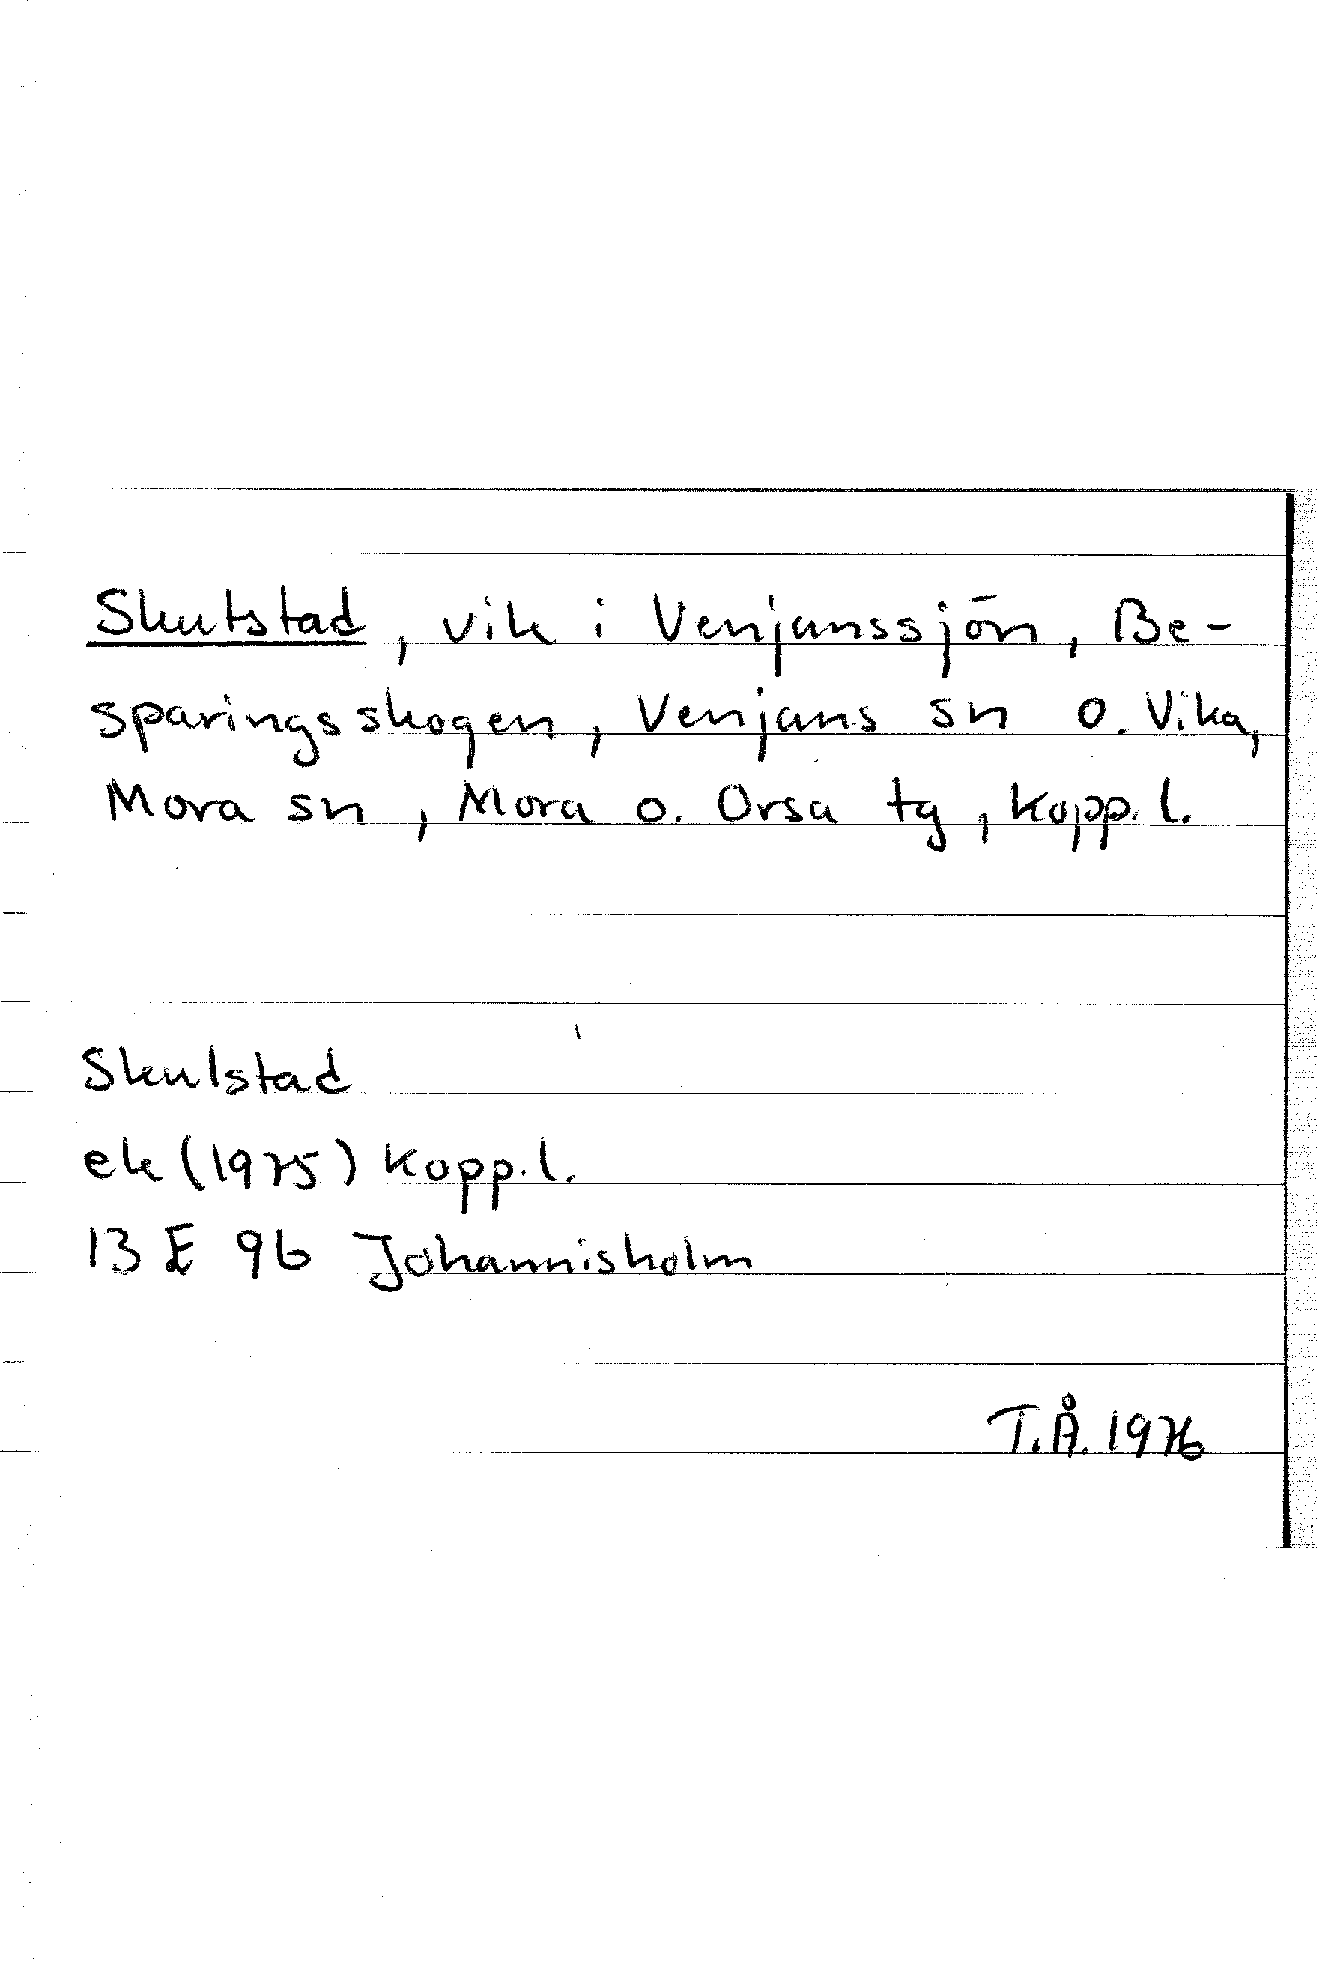 Skutstad, vik i Venjanssjön, Be-
sparingsskogen, Venjans sn o. Vika,
Mora sn, Mora o. Orsa tg, Kopp. l.
Skulstad
ek (1975) Kopp. l.
13 E 9b Johannisholm
T.Å. 1976